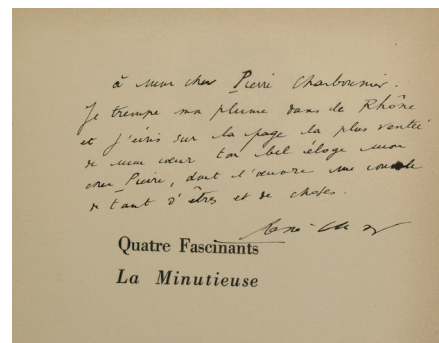 à mon cher Pierre Charbonnier.
Je trempe ma plume dans le Rhône
et j'écris sur la page la plus ventée
de mon cœur ton bel éloge mon
cher Pierre, dont l'œuvre me console
de tant d'êtres et de choses.
René Char
Quatre Fascinants
La Minutieuse